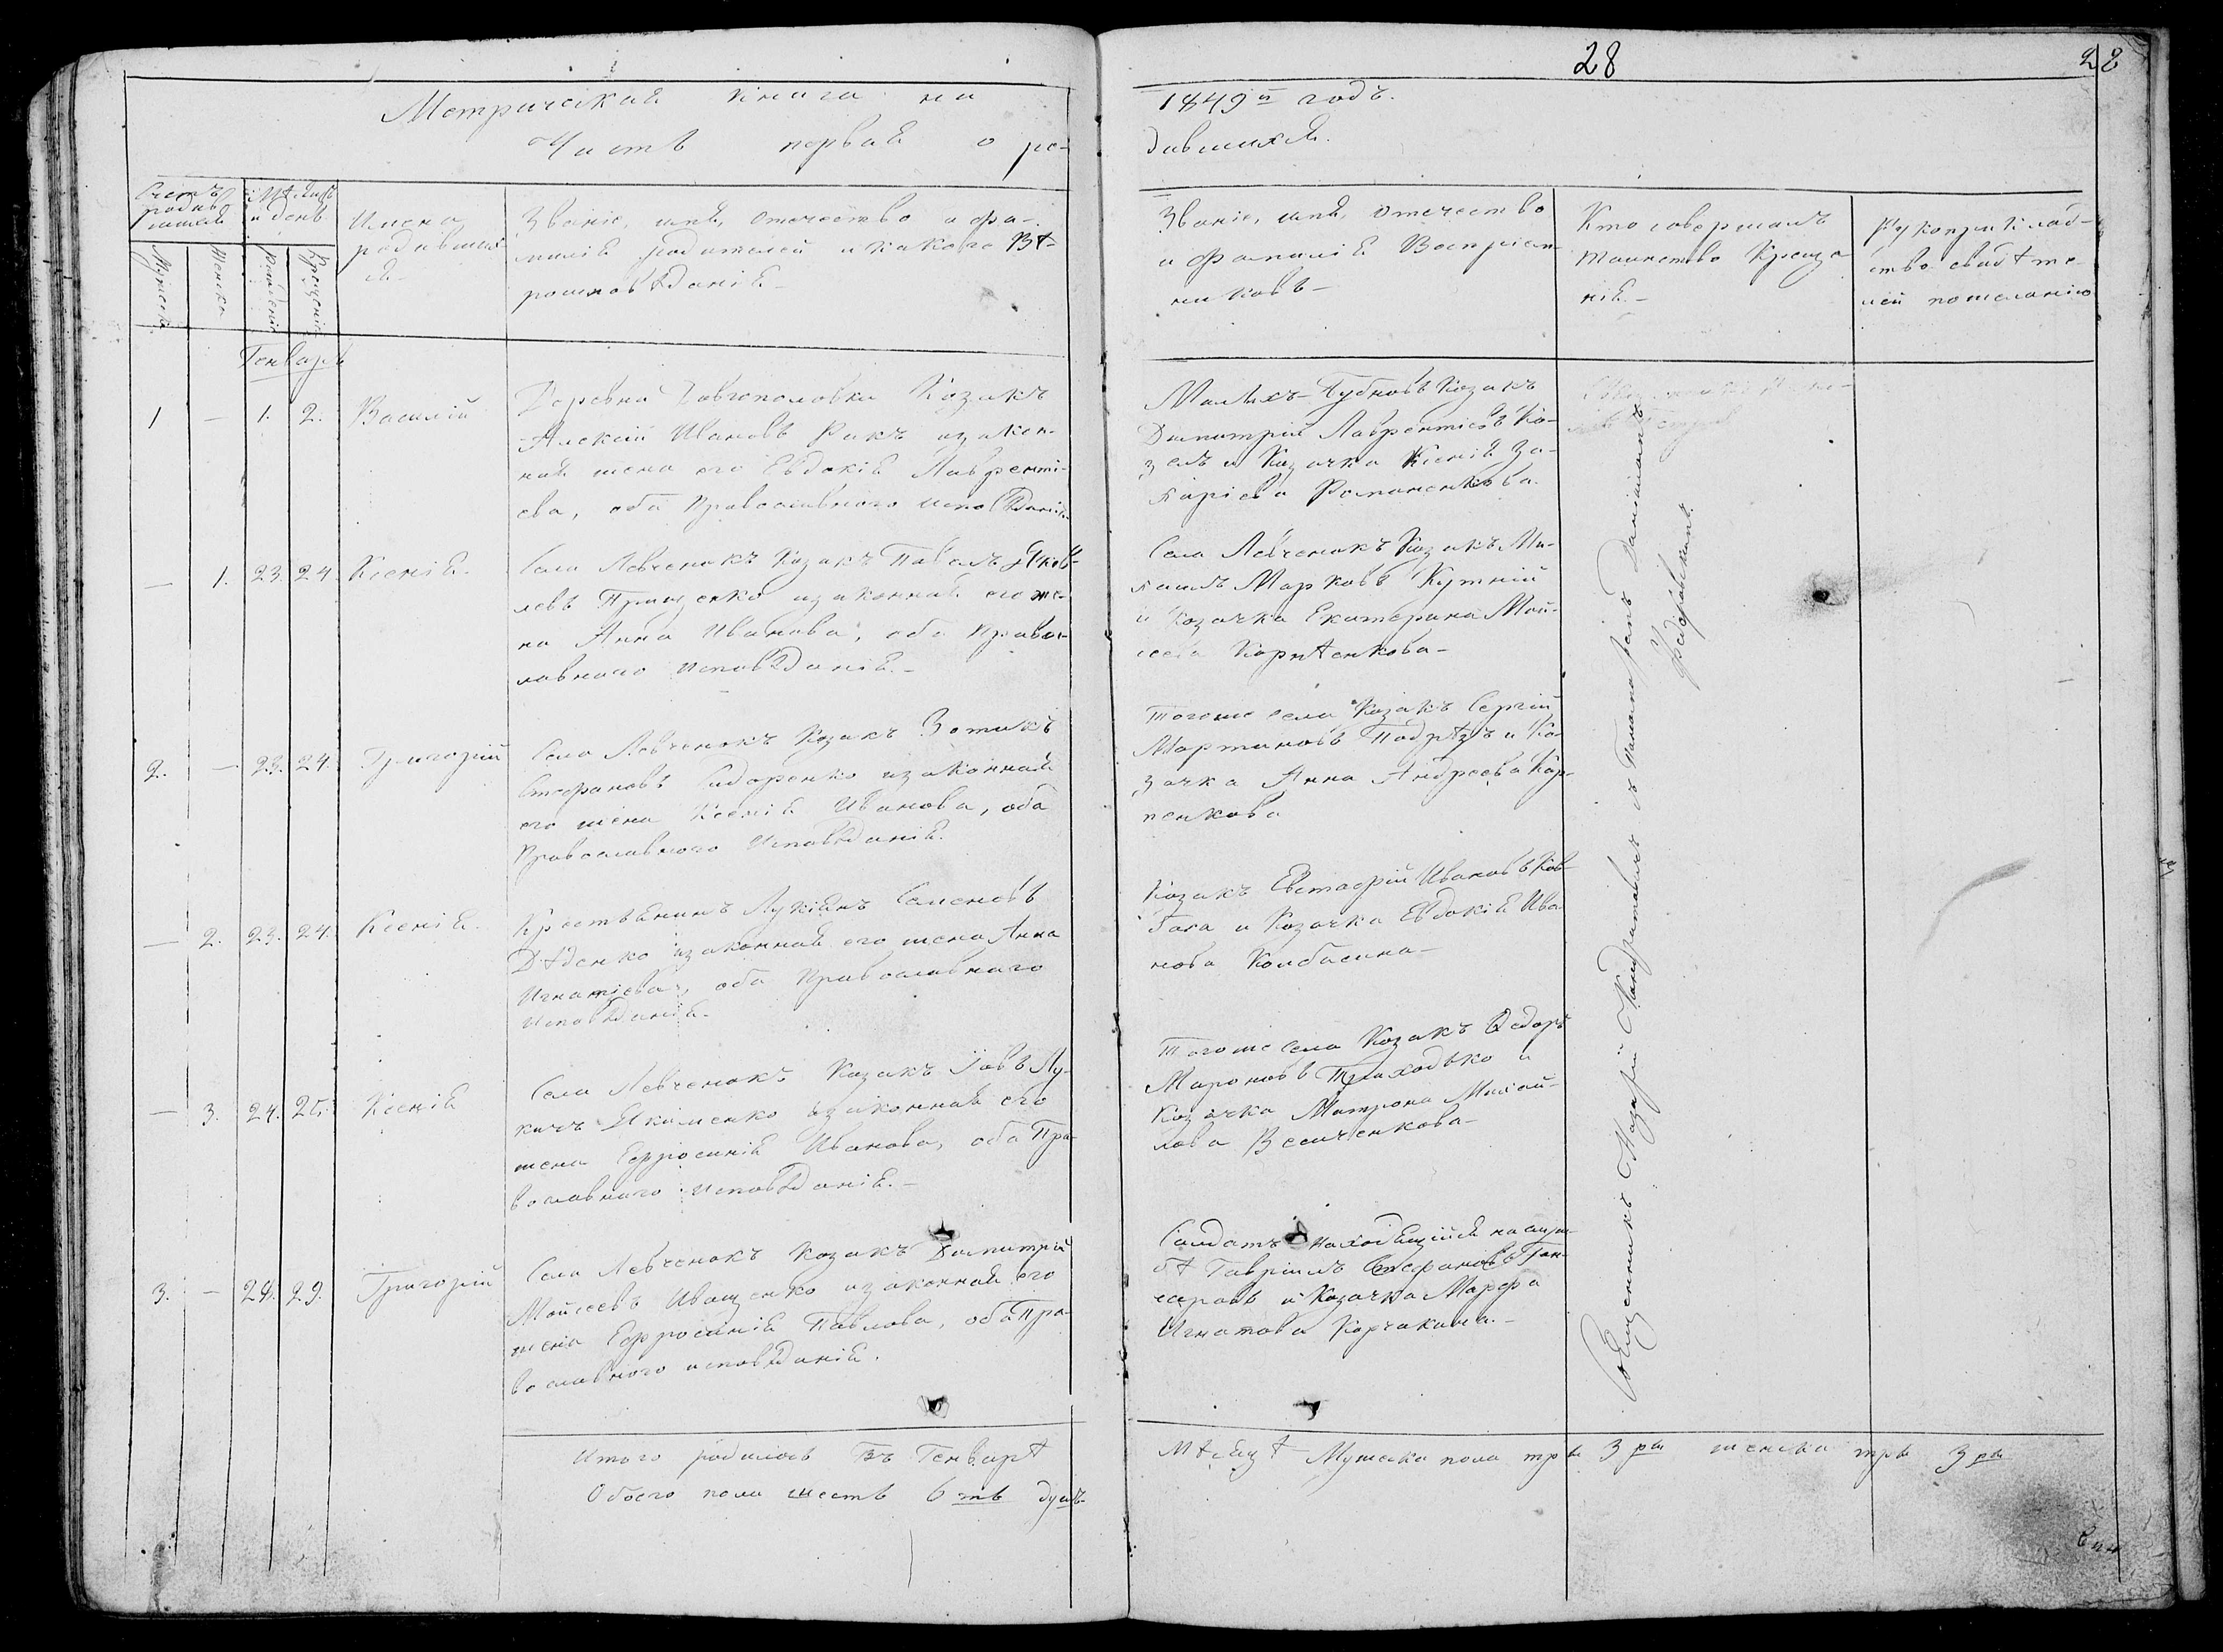 28
28
Метрическая книга на
1849й годъ.
Часть первая о ро-
дившихся.
Счетъ родившихся
Мѣсяцъ и день
Имена родившихся
Званіе, имя, отечество и фа-
милія родителей и какого Вѣ-
роисповѣданія
Мужеска
Женска
Рожденія
Крещенія
Званіе, имя, отечество
и фамилія Воспріем-
никовъ
Кто совершалъ
таинство Креще-
нія.
Рукоприклад-
ство свидѣте-
лей по желанію
Генварь
1 — 1. 2. Василій
Деревни Козакъ
Алексій Ивановъ Ракъ и закон-
ная жена его Евдокія Лаврентi-
ева, оба Православного исповѣданія
Козакъ
Димитрій Лаврентіевъ Ко-
зелъ и Козачка Ксенія За-
харіева Романенкова.
— 1. 23. 24 Ксенія.
Села Левченокъ Козакъ Павелъ Яков-
левъ Грищенко и законная его же-
на Анна Иванова, оба Правос-
лавного исповѣданія.
Села Левченокъ Козакъ Ми-
хаилъ Марковъ Кутній
и Козачка Екатерина Мой-
сеева Корнѣенкова
2. — 23. 24. Григорій
Села Левченокъ Козакъ Зотикъ
Стефановъ Сидоренко и законная
его жена Ксенія Иванова, оба
Православного исповѣданія.
Тогоже села Козакъ Сергій
Мартиновъ Подрѣзъ и Ко-
зачка Анна Андреева Кар-
пенкова
— 2. 23. 24. Ксенія.
Крестьянинъ Лукіянъ Семеновъ
Дѣденко и законная его жена Анна
Игнатіева, оба Православнаго
исповѣданія.
Козакъ Евстафій Ивановъ Ков-
баса и Козачка Евдокія Ива-
нова Колбасина
— 3. 24. 25. Ксенія
Села Левченокъ Козакъ Іовъ Лу-
кичъ Якименко и законная его
жена Ефросинія Иванова, оба Пра-
вославного исповѣданія.
Тогоже села Козакъ Ѳедоръ
Мароновъ Приходько и
Козачка Матрона Михай-
лова Величенкова
3. — 28. 29. Григорій
Села Левченокъ Козакъ Димитрій
Мойсеевъ Иващенко и законная его
жена Ефросинія Павлова, оба Пра-
вославного исповѣданія.
Солдатъ находящійся на служ-
бѣ Гавріилъ Стефановъ Гон-
чаровъ и Козачка Марфа
Игнатова Корчакина.
Священникъ Назарій Кондратовичъ съ Даміаномъ
Федоровскимъ.
Итого родилось Въ Генварѣ
мѣсяцѣ Мужеска пола три 3ри женска три 3ри
Обоего пола шесть 6ть душъ